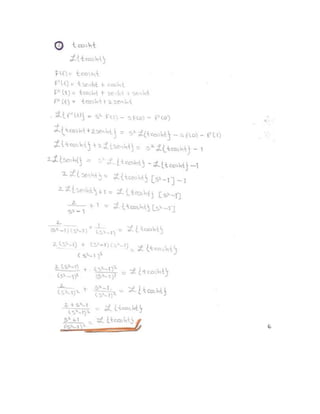 ② t cosht
ℒ{t cosht}
F(t) = t cosht
F'(t) = t senht + cosht
F''(t) = t cosht + senht + senht
F''(t) = t cosht + 2 senht
ℒ{F''(t)} = s² F(s) - s F(0) - F'(0)
ℒ{t cosht + 2 senht} = s² ℒ{t cosht} - s F(0) - F'(0)
ℒ{t cosht} + 2 ℒ{senht} = s² ℒ{t cosht} - 1
2ℒ{senht} = s² ℒ{t cosht} - ℒ{t cosht} - 1
2ℒ{senht} = ℒ{t cosht} [s²-1] - 1
2ℒ{senht} + 1 = ℒ{t cosht} [s²-1]
2/(s²-1) + 1 = ℒ{t cosht} [s²-1]
2/((s²-1)(s²-1)) + 1/(s²-1) = ℒ{t cosht}
(2(s²-1) + (s²-1)(s²-1))/(s²-1)³ = ℒ{t cosht}
2(s²-1)/(s²-1)³ + (s²-1)²/(s²-1)³ = ℒ{t cosht}
2/(s²-1)² + (s²-1)/(s²-1)² = ℒ{t cosht}
(2+s²-1)/(s²-1)² = ℒ{t cosht}
(s²+1)/(s²-1)² = ℒ{t cosht}